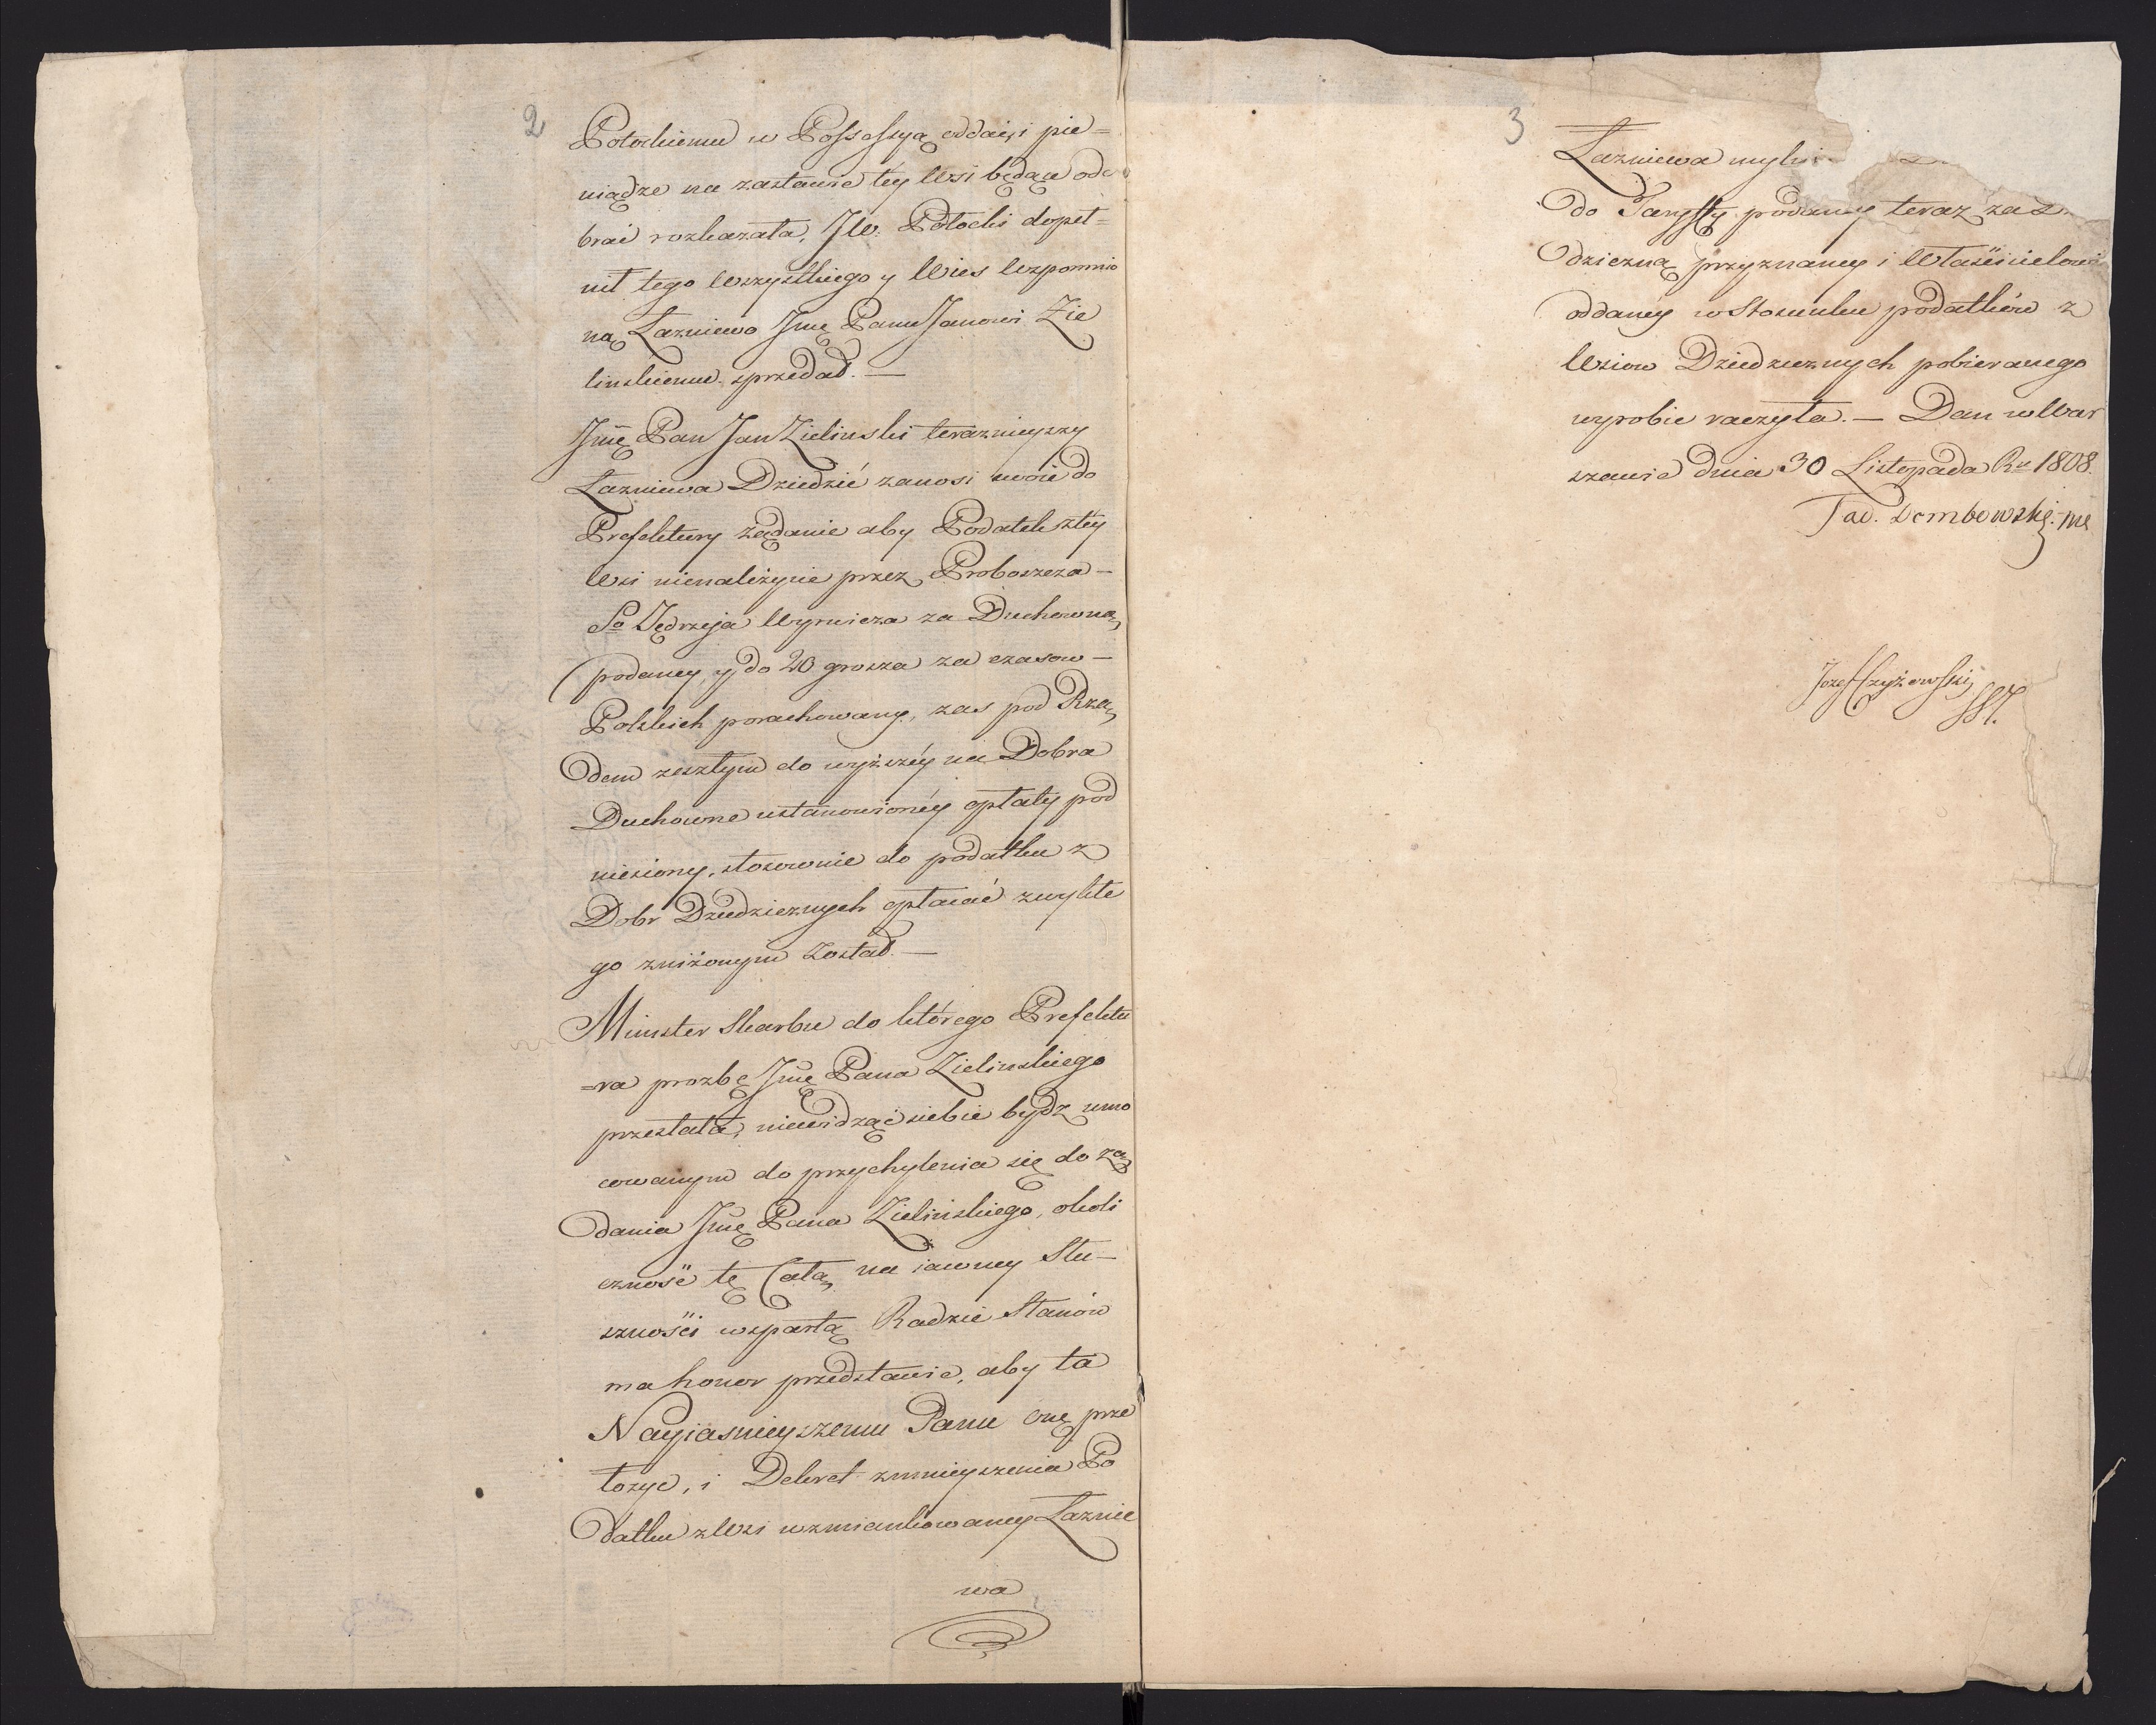 2
Potockiemu w Possessyą oddać, i pie=
niądze na zastawie téy Wsi będące ode
brać rozkazała, JW. Potocki dopeł=
nił tego Wszystkiego y Wies Wzpomnio
ną Łazniewo Jmę Panu Janowi Zie
linskiemu sprzedał. —
Jmę Pan Jan Zielinski teraznieyszy
Łazniewa Dziedzić zanosi swoie do
Prefektury żądanie aby Podatek ztéy
Wsi nienależycie przez Proboszcza —
So Jędrzeja Wyrwicza za Duchowną
podaney, y do 20 grosza za czasow —
Polskich porachowany, zas pod Rzą
dem zeszłym do wyższéy na Dobra
Duchowne ustanowionéy opłaty pod
niesiony, stosownie do podatku z
Dobr Dziedzicznych opłacać zwykłe
go zniżonym został. —
Minister Skarbu do którego Prefektu
=ra prozbę Jmę Pana Zielinskiego
przesłała, niewidząc siebie bydz umo
cowanym do przychylenia się do żą
dania Jmę Pana Zielinskiego, okoli
cznosć tę Całą na iawney Słu—
sznosci wspartą Radzie Stanów
ma honor przedstawić, aby ta
Nayiasnieyszemu Panu onę prze
łozyć, i Dekret zmnieyszenia Po
datku z Wsi wzmiankowaney Łaznie
wa
3
Łazniewa mylni
do Taryffy podaney teraz zas
dziczną przyznaney i Właścicielowi
oddanéy w Stosunku podatków z
Wsiow Dziedzicznych pobieranego
wyrobić raczyła. — Dan w War
szawie dnia 30 Listopada Ru 1808.
Tad. Dembowski. mp
Jozef Czyżewski
SSJ.